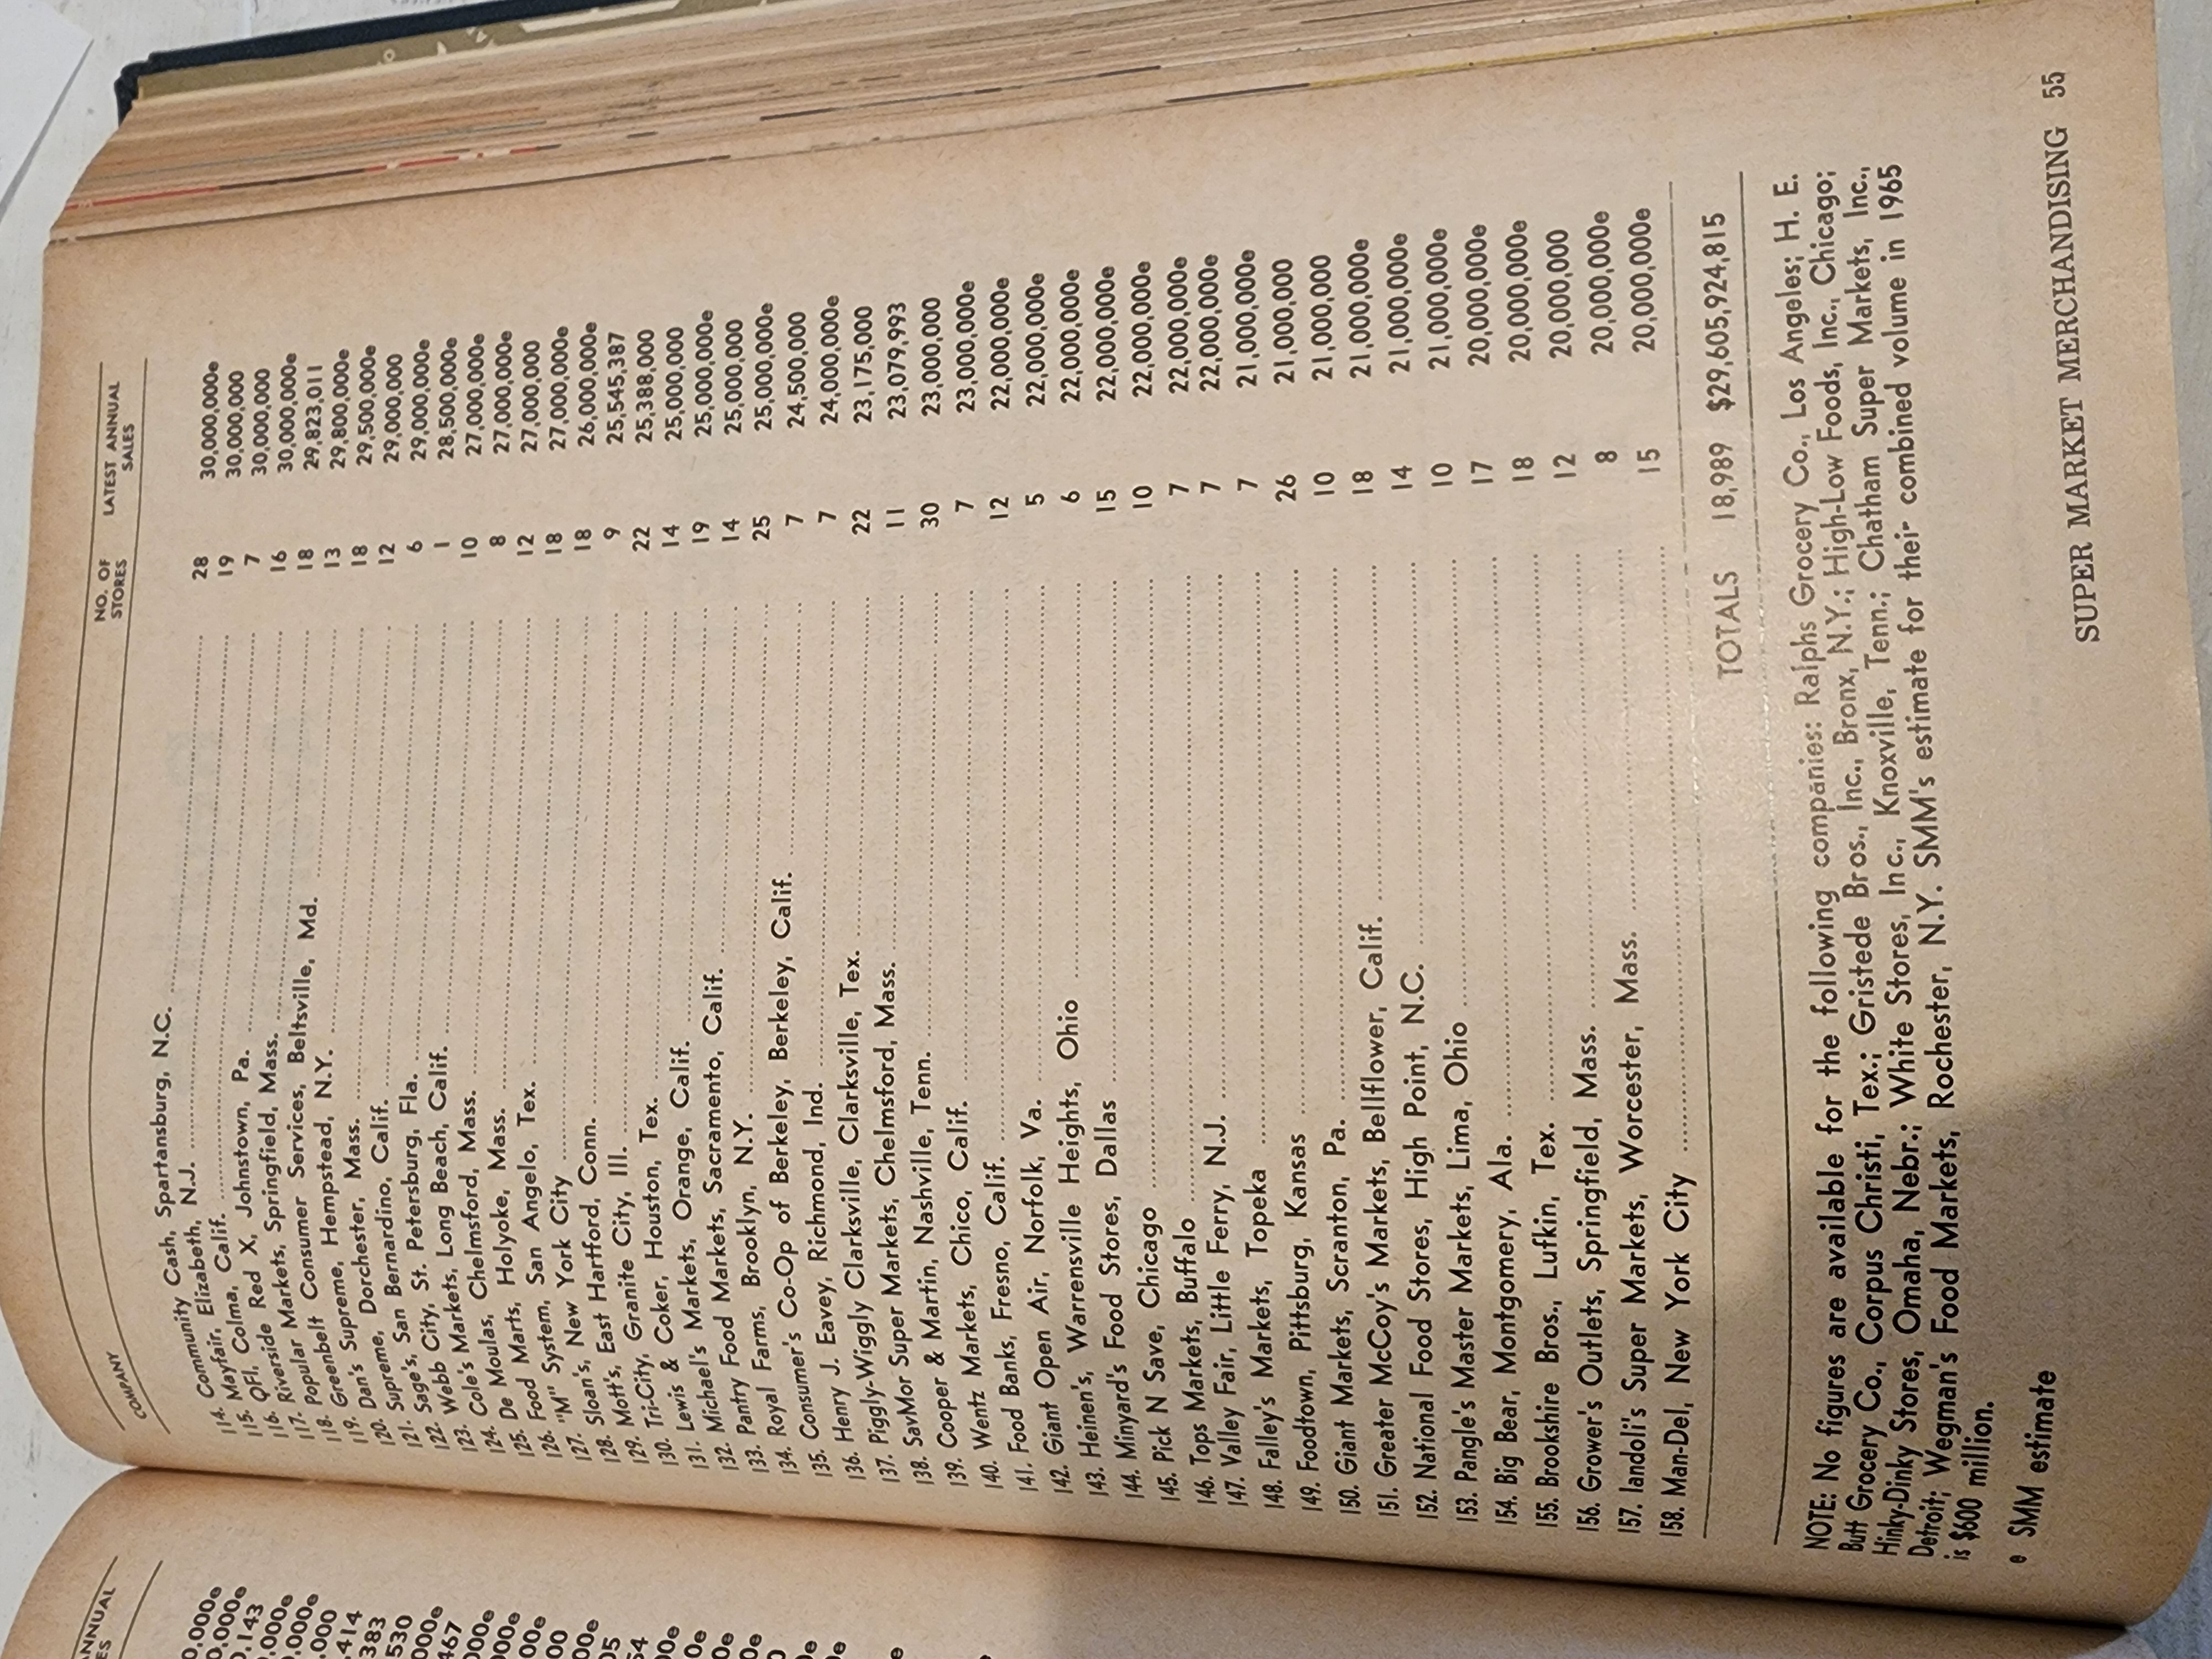 COMPANY NO. OF STORES LATEST ANNUAL SALES
114. Community Cash, Spartansburg, N.C. 28 30,000,000e
115. Mayfair, Elizabeth, N.J. 19 30,000,000
116. QFI, Colma, Calif. 7 30,000,000
117. Riverside Red X, Johnstown, Pa. 16 30,000,000e
118. Popular Markets, Springfield, Mass. 18 29,823,011
119. Greenbelt Consumer Services, Beltsville, Md. 13 29,800,000e
120. Dan's Supreme, Hempstead, N.Y. 18 29,500,000e
121. Supreme, Dorchester, Mass. 12 29,000,000
122. Sage's, San Bernardino, Calif. 6 29,000,000e
123. Webb City, St. Petersburg, Fla. 1 28,500,000e
124. Cole's Markets, Long Beach, Calif. 10 27,000,000e
125. De Moulas, Chelmsford, Mass. 8 27,000,000e
126. Food Marts, Holyoke, Mass. 12 27,000,000
127. "M" System, San Angelo, Tex. 18 27,000,000e
128. Sloan's, New York City 18 26,000,000e
129. Mott's, East Hartford, Conn. 9 25,545,387
130. Tri-City, Granite City, Ill. 22 25,388,000
131. Lewis & Coker, Houston, Tex. 14 25,000,000
132. Michael's Markets, Orange, Calif. 19 25,000,000e
133. Pantry Food Markets, Sacramento, Calif. 14 25,000,000
134. Royal Farms, Brooklyn, N.Y. 25 25,000,000e
135. Consumer's Co-Op of Berkeley, Berkeley, Calif. 7 24,500,000
136. Henry J. Eavey, Richmond, Ind. 7 24,000,000e
137. Piggly-Wiggly Clarksville, Clarksville, Tex. 22 23,175,000
138. SavMor Super Markets, Chelmsford, Mass. 11 23,079,993
139. Cooper & Martin, Nashville, Tenn. 30 23,000,000
140. Wentz Markets, Chico, Calif. 7 23,000,000e
141. Food Banks, Fresno, Calif. 12 22,000,000e
142. Giant Open Air, Norfolk, Va. 5 22,000,000e
143. Heinen's, Warrensville Heights, Ohio 6 22,000,000e
144. Minyard's Food Stores, Dallas 15 22,000,000e
145. Pick N Save, Chicago 10 22,000,000e
146. Tops Markets, Buffalo 7 22,000,000e
147. Valley Fair, Little Ferry, N.J. 7 22,000,000e
148. Falley's Markets, Topeka 7 21,000,000e
149. Foodtown, Pittsburg, Kansas 26 21,000,000
150. Giant Markets, Scranton, Pa. 10 21,000,000
151. Greater McCoy's Markets, Bellflower, Calif. 18 21,000,000e
152. National Food Stores, High Point, N.C. 14 21,000,000e
153. Pangle's Master Markets, Lima, Ohio 10 21,000,000e
154. Big Bear, Montgomery, Ala. 17 20,000,000e
155. Brookshire Bros., Lufkin, Tex. 18 20,000,000e
156. Grower's Outlets, Springfield, Mass. 12 20,000,000
157. Iandoli's Super Markets, Worcester, Mass. 8 20,000,000e
158. Man-Del, New York City 15 20,000,000e
TOTALS 18,989 $29,605,924,815
NOTE: No figures are available for the following companies: Ralphs Grocery Co., Los Angeles; H. E.
Butt Grocery Co., Corpus Christi, Tex.; Gristede Bros., Inc., Bronx, N.Y.; High-Low Foods, Inc., Chicago;
Hinky-Dinky Stores, Omaha, Nebr.; White Stores, Inc., Knoxville, Tenn.; Chatham Super Markets, Inc.,
Detroit; Wegman's Food Markets, Rochester, N.Y. SMM's estimate for their combined volume in 1965
is $600 million.
e SMM estimate
SUPER MARKET MERCHANDISING 55